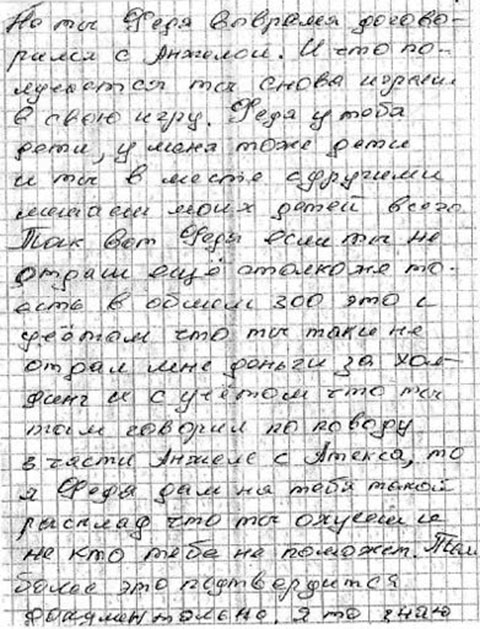 Но ты Федя вывремя догово-
рился с Анжелой. И что по-
лучается ты снова играеш
в свою игру. Федя у тебя
дети, у меня тоже дети
и ты в месте с другими
лишаеш моих детей всего.
Так вот Федя если ты не
отдаш ещё столкоже то-
есть в общем 300 это с
учётом что ты таки не
отдал мне деньги за хол-
динг и с учётом что ты
там говорил по поводу
з части Анжеле с Атекса, то
я Федя дам на тебя такой
расклад что ты охуееш и
не кто тебе не поможет. Тем
более это подтвердится
документально. я то знаю